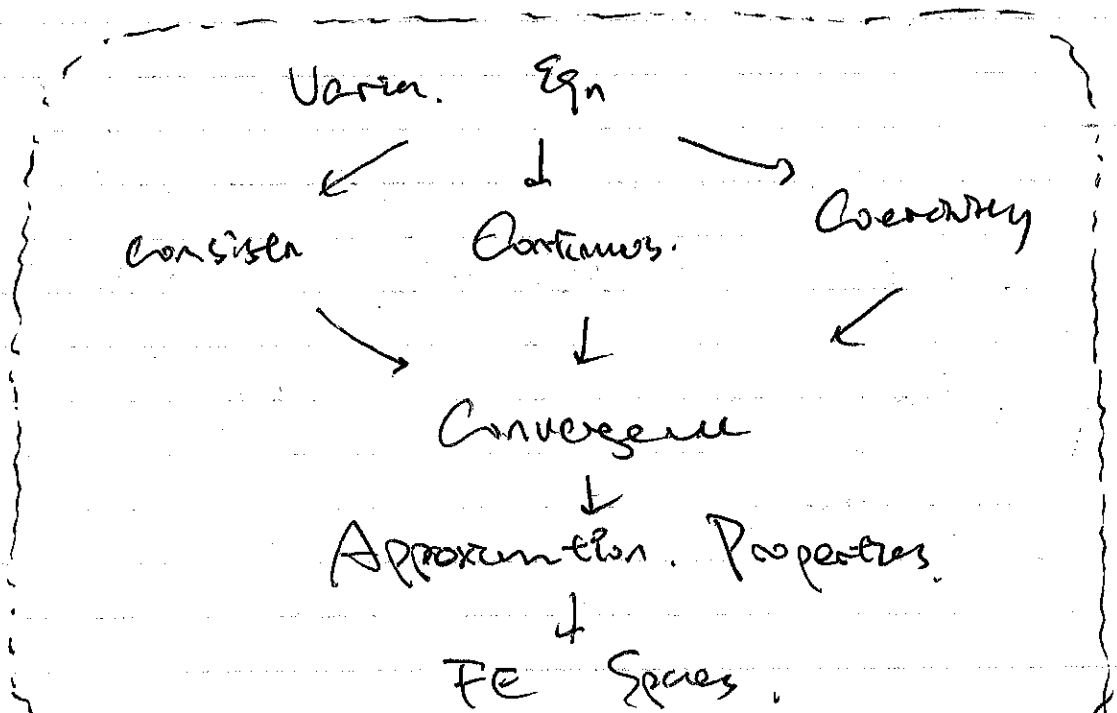 Varia. Eqn
consisten Continuous. Coercivity
Convergence
Approximation. Properties.
FE Spaces.